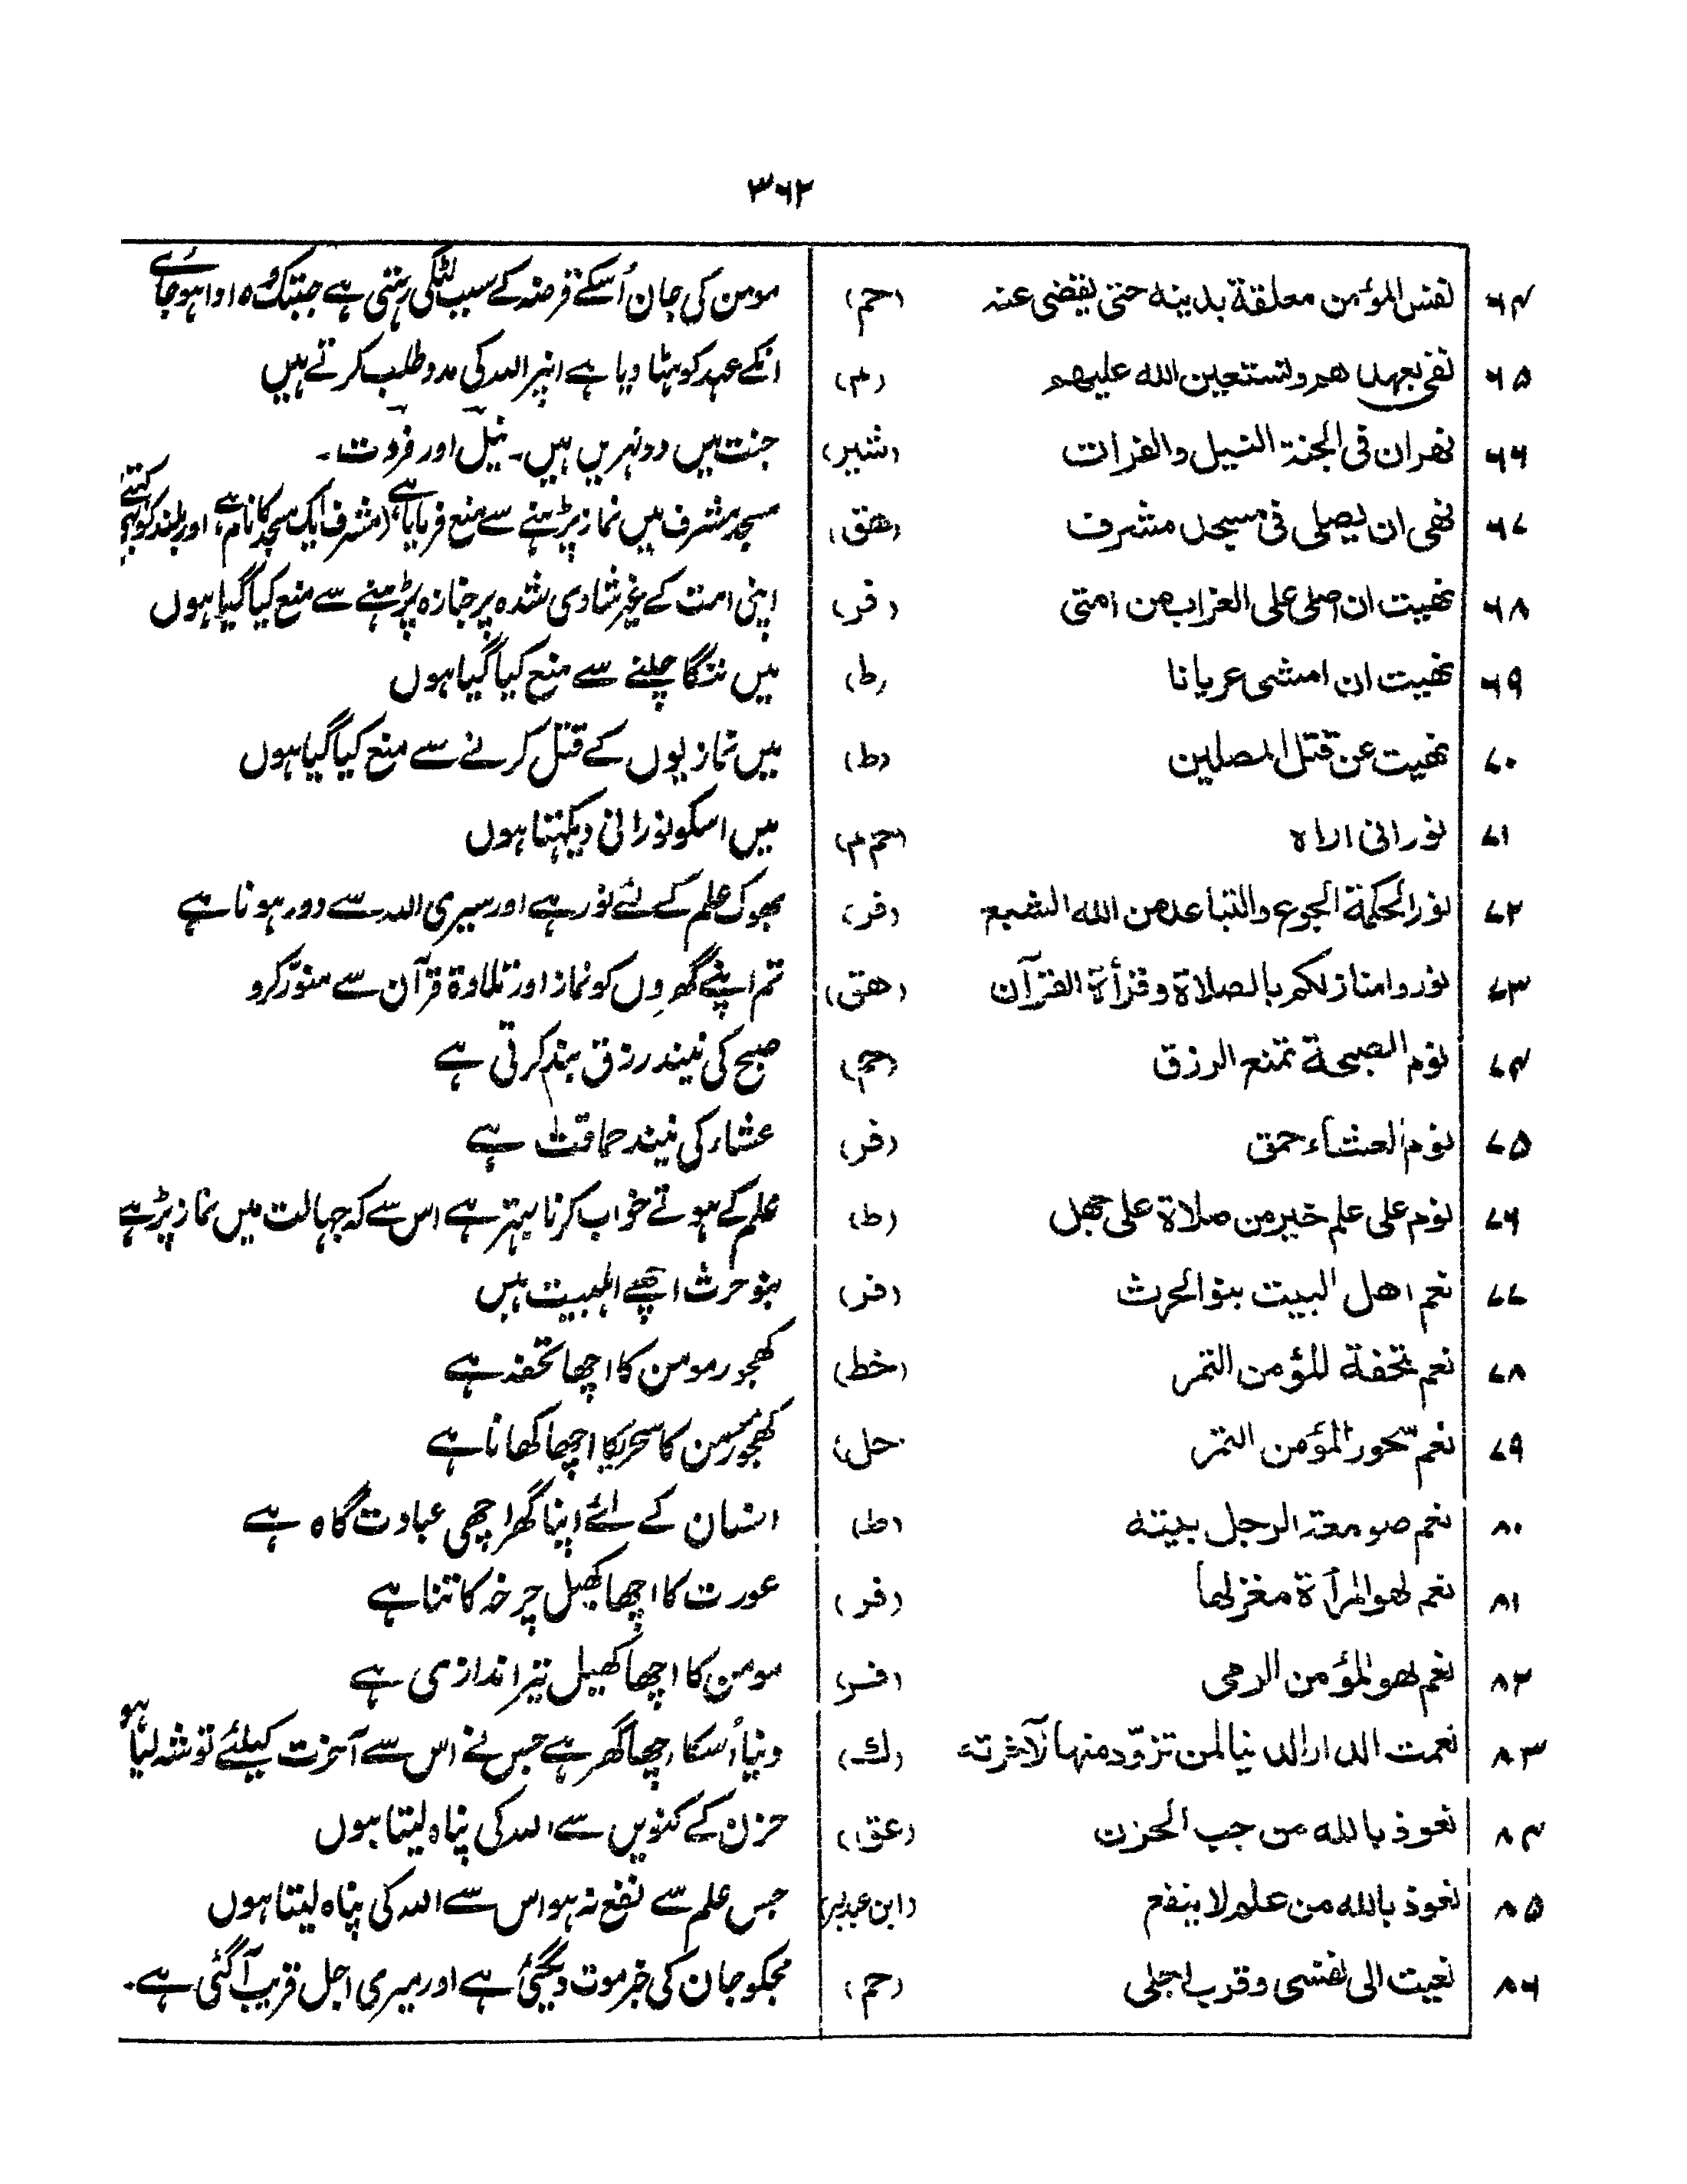 ۳۶۲
۶۴ نفس المؤمن معلقة بدينه حتى يقضى عنه (حم) مومن کی جان اُسکے قرضہ کے سبب لٹکی رہتی ہے جبتک وہ ادا ہو جائے
۶۵ نفى بعهدهم ونستعين الله عليهم (م) انکے عہد کو ہٹا دیا ہے انپر اللہ کی مدد طلب کرتے ہیں
۶۶ نهران فى الجنة النيل والفرات (شیر) جنت میں دو نہریں ہیں۔ نیل اور فروت۔
۶۷ نهى ان يصلى فى مسجد مشرف (هق) مسجد مشرف میں نماز پڑہنے سے منع فرمایا ہے (مشرف ایک مسجد کا نام ہے اور بلند کو بھی کہتے
۶۸ نهيت ان اصلى على العزاب من امتى (فر) اپنی امت کے غیر شادی شدہ پر جنازہ پڑہنے سے منع کیا گیا ہوں
۶۹ نهيت ان امشى عريانا (ط) میں ننگا چلنے سے منع کیا گیا ہوں
۷۰ نهيت عن قتل المصلين (ط) میں نمازیوں کے قتل کرنے سے منع کیا گیا ہوں
۷۱ نور انى اراه (حم م) میں اسکو نورانی دیکہتا ہوں
۷۲ نور الحكمة الجوع والتباعد من الله الشبع (فر) بھوک علم کے لئے نور ہے اور سیری اللہ سے دور ہونا ہے
۷۳ نوروا منازلكم بالصلاة وقرأة القرآن (هق) تم اپنے گھروں کو نماز اور تلاوۃ قرآن سے منوّر کرو
۷۴ نوم الصبحة تمنع الرزق (حم) صبح کی نیند رزق بند کرتی ہے
۷۵ نوم العشاء حمق (فر) عشاء کی نیند حماقت ہے
۷۶ نوم على علم خير من صلاة على جهل (ط) علم کے ہوتے خواب کرنا بہتر ہے اس سے کہ جہالت میں نماز پڑہے
۷۷ نعم اهل البيت بنو الحرث (فر) بنو حرث اچھے اہلبیت ہیں
۷۸ نعم تحفة للمؤمن التمر (خط) کھجور مومن کا اچھا تحفہ ہے
۷۹ نعم سحور المؤمن التمر (حل) کھجور مومن کا سحری کا اچھا کھانا ہے
۸۰ نعم صومعة الرجل بيته (ط) انسان کے لئے اپنا گھر اچھی عبادت گاہ ہے
۸۱ نعم لهو المرأة مغزلها (فر) عورت کا اچھا کھیل چرخہ کاتنا ہے
۸۲ نعم لهو المؤمن الرمى (فر) مومن کا اچھا کھیل تیر اندازی ہے
۸۳ نعمت الدار الدنيا لمن تزوّد منها لآخرته (ك) دنیا اُسکا اچھا گھر ہے جس نے اس سے آخرت کیلئے توشہ لیا ہو
۸۴ نعوذ بالله من جب الحزن (عق) حزن کے کنویں سے اللہ کی پناہ لیتا ہوں
۸۵ نعوذ بالله من علم لا ينفع (ابن عبدالبر) جس علم سے نفع نہ ہو اس سے اللہ کی پناہ لیتا ہوں
۸۶ نعيت الى نفسى وقرب اجلى (حم) مجکو جان کی خبر موت دیگئی ہے اور میری اجل قریب آگئی ہے۔